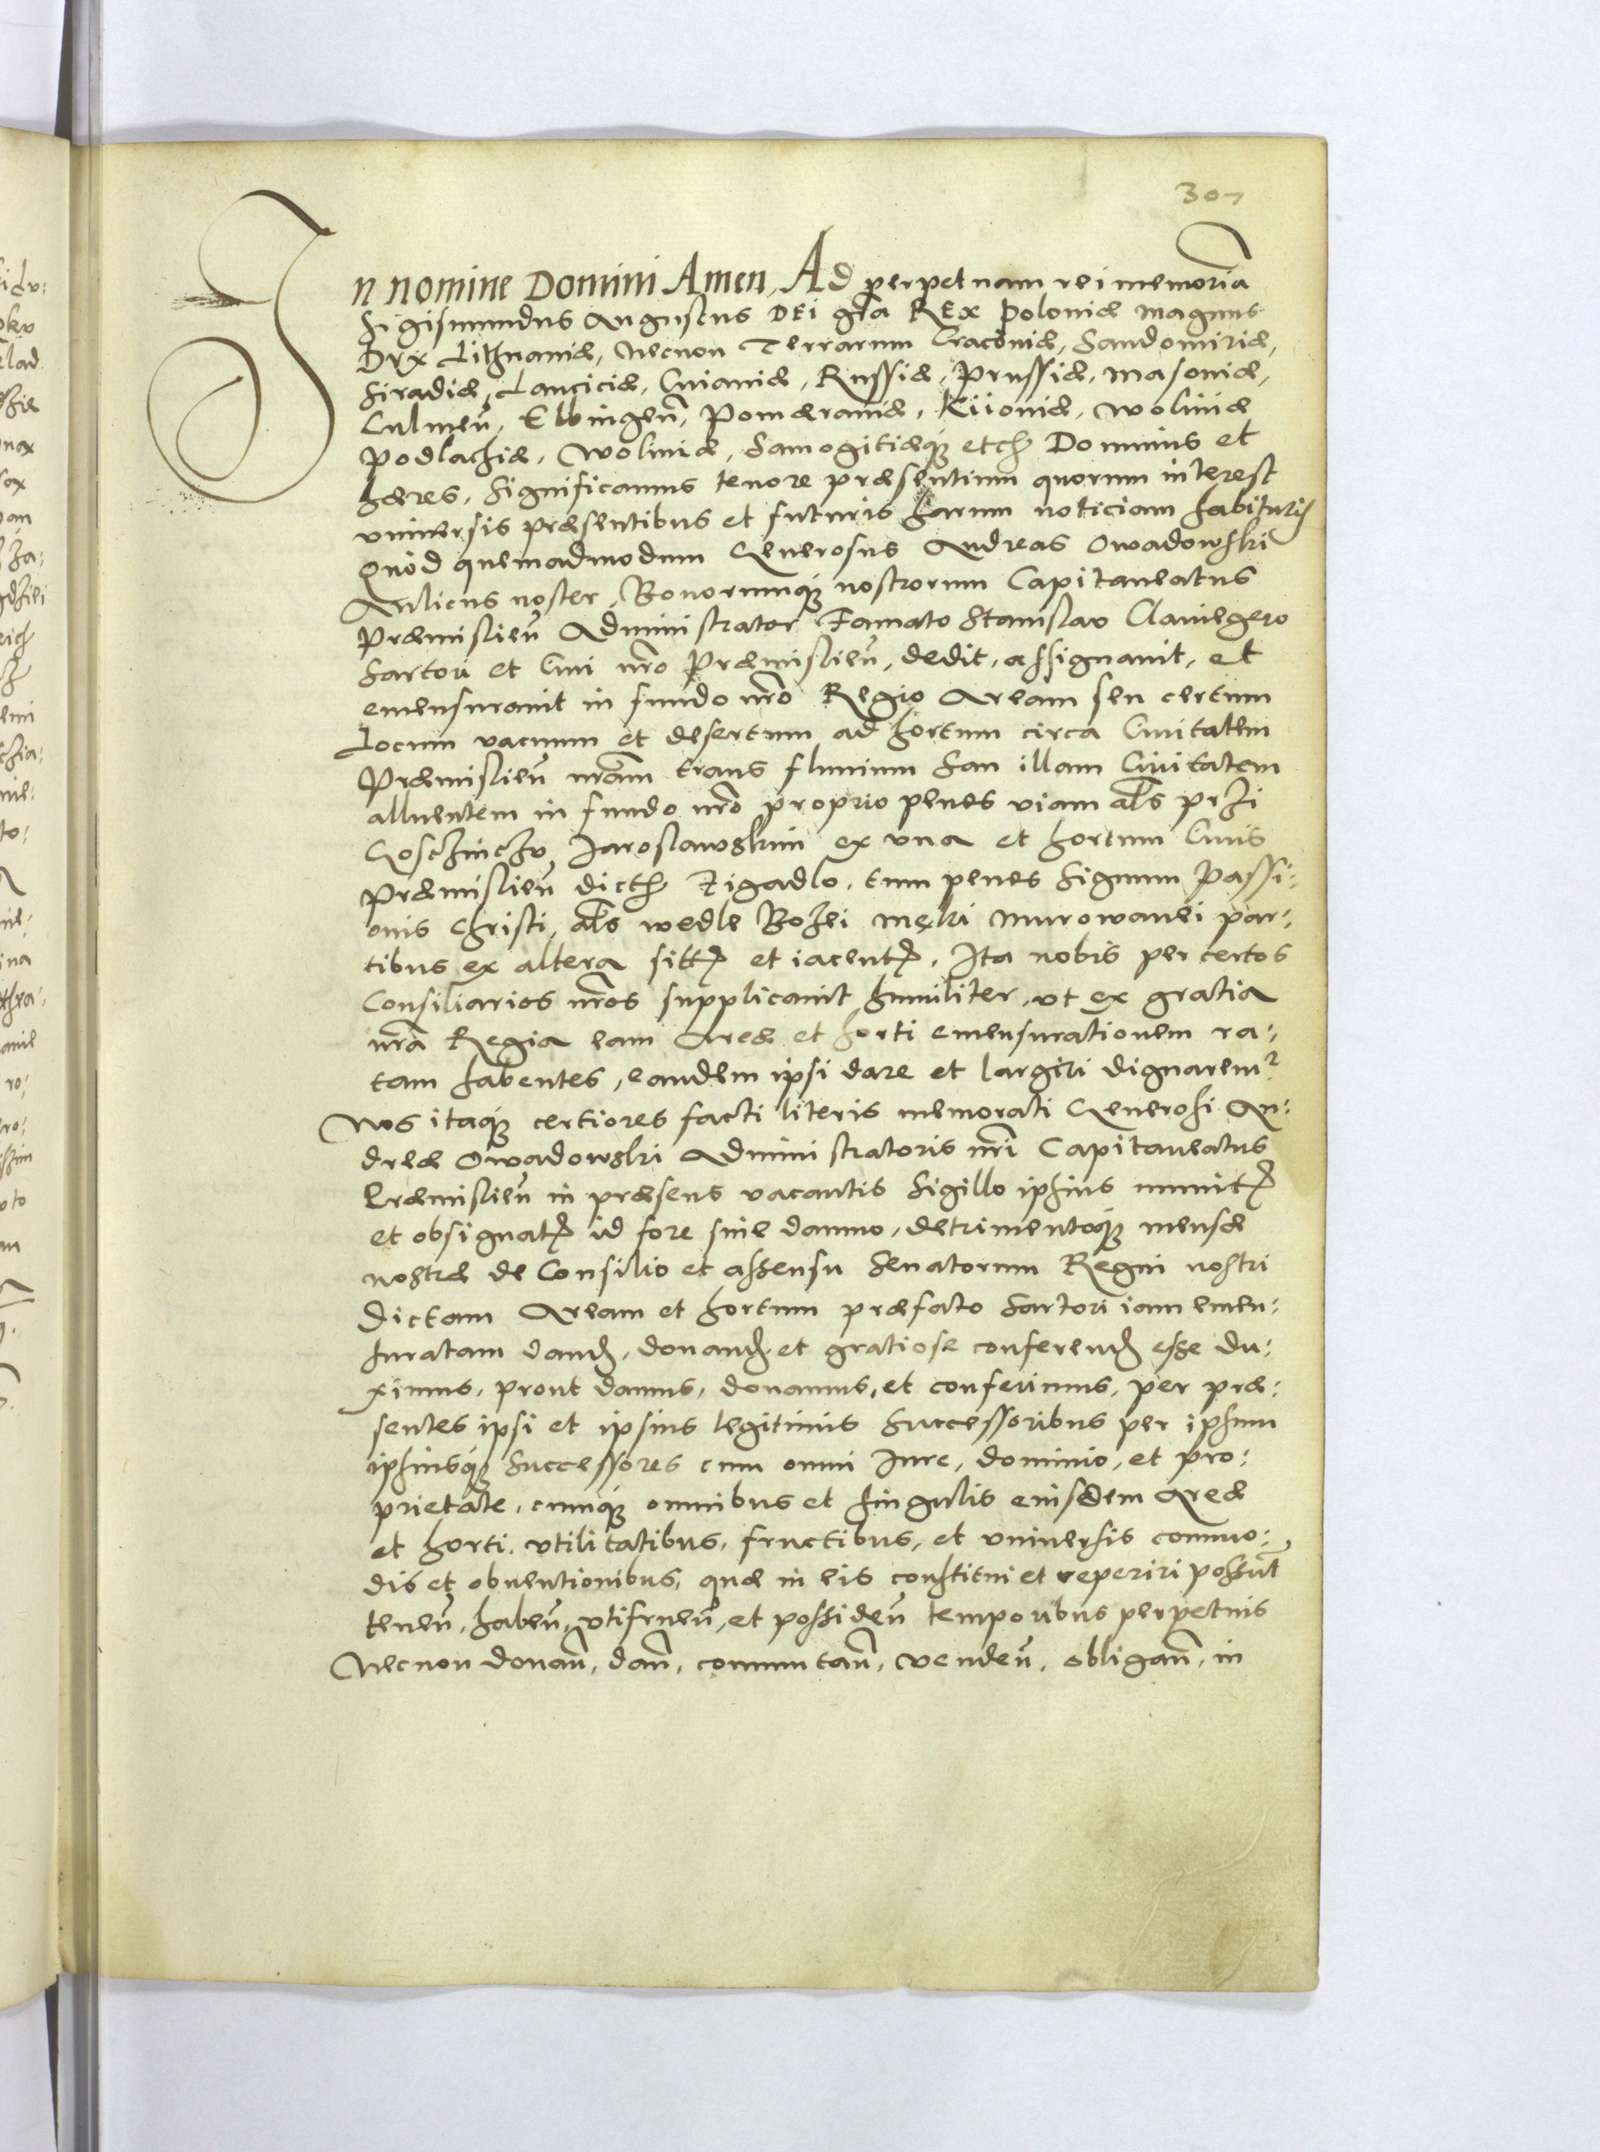 307
In nomine Domini Amen, Ad perpetuam rei memoria
Sigismundus Augustus DEi gra REx Poloniæ magnus
Dux Lithuaniæ, Necnon Terrarum Cracouiæ, Sandomiriæ,
Siradiæ, Lanciciæ, Cuiauiæ, Russiæ, Prussiæ, Masouiæ,
Culmeñ, Elbingeñ, Pomæraniæ, Kiiouiæ, Woliniæ
Podlachiæ, Woliniæ, Samogitiæq; etc Dominus et
hæres, Significamus tenore præsentium quorum interest
vniuersis præsentibus et futuris harum noticiam habituris
Quòd quemadmodum Generosus Andreas Owadowski
Aulicus noster, Bonorumq; nostrorum Capitaneatus
Præmislieñ Administrator Famato Stanislao Clauigero
Sartori et Ciui nr̃o Præmislieñ, dedit, assignauit, et
emensurauit in fundo nr̃o Regio Aream seu certum
Locum vacuum et desertum ad hortum circa Ciuitatem
Præmislieñ nr̃am trans fluuium San illam Ciuitatem
alluentem in fundo nr̃o proprio penes viam al̃s przi
Gosczinczu Jaroslawskim ex vna et hortum Ciuis
Præmislieñ dict Zigadlo, tum penes Signum Passi:
onis Christi, al̃s wedle Bozei męki murowanei par:
tibus ex altera sitt et iacent, Ita nobis per certos
Consiliarios nr̃os supplicauit humiliter, vt ex gratia
nr̃a Regia eam Areæ et horti emensurationem ra:
tam habentes, eandem ipsi dare et largiri dignarem̃
Nos itaq; certiores facti literis memorati Generosi An:
dreæ Owadowski Administratoris nr̃i Capitaneatus
Præmislieñ in præsens vacantis Sigillo ipsius munit
et obsignat id fore sine damno, detrimentoq; mensæ
nostræ de Consilio et assensu Senatorum Regni nostri
dictam Aream et hortum præfato Sartori iam emen:
suratam dand, donand et gratiose conferend esse du:
ximus, prout damus, donamus, et conferimus, per præ:
sentes ipsi et ipsius legitimis Successoribus per ipsum
ipsiusq; Successores cum omni Iure, dominio, et pro:
prietate, cumq; omnibus et singulis eiusdem Areæ
et horti vtilitatibus, fructibus, et vniuersis commo:
dis et obuentionibus, quæ in eis constitui et reperiri possũt
teneñ, habeñ, vtifrueñ, et possideñ temporibus perpetuis
Necnon donañ, dañ, commutañ, vendeñ, obligañ, in